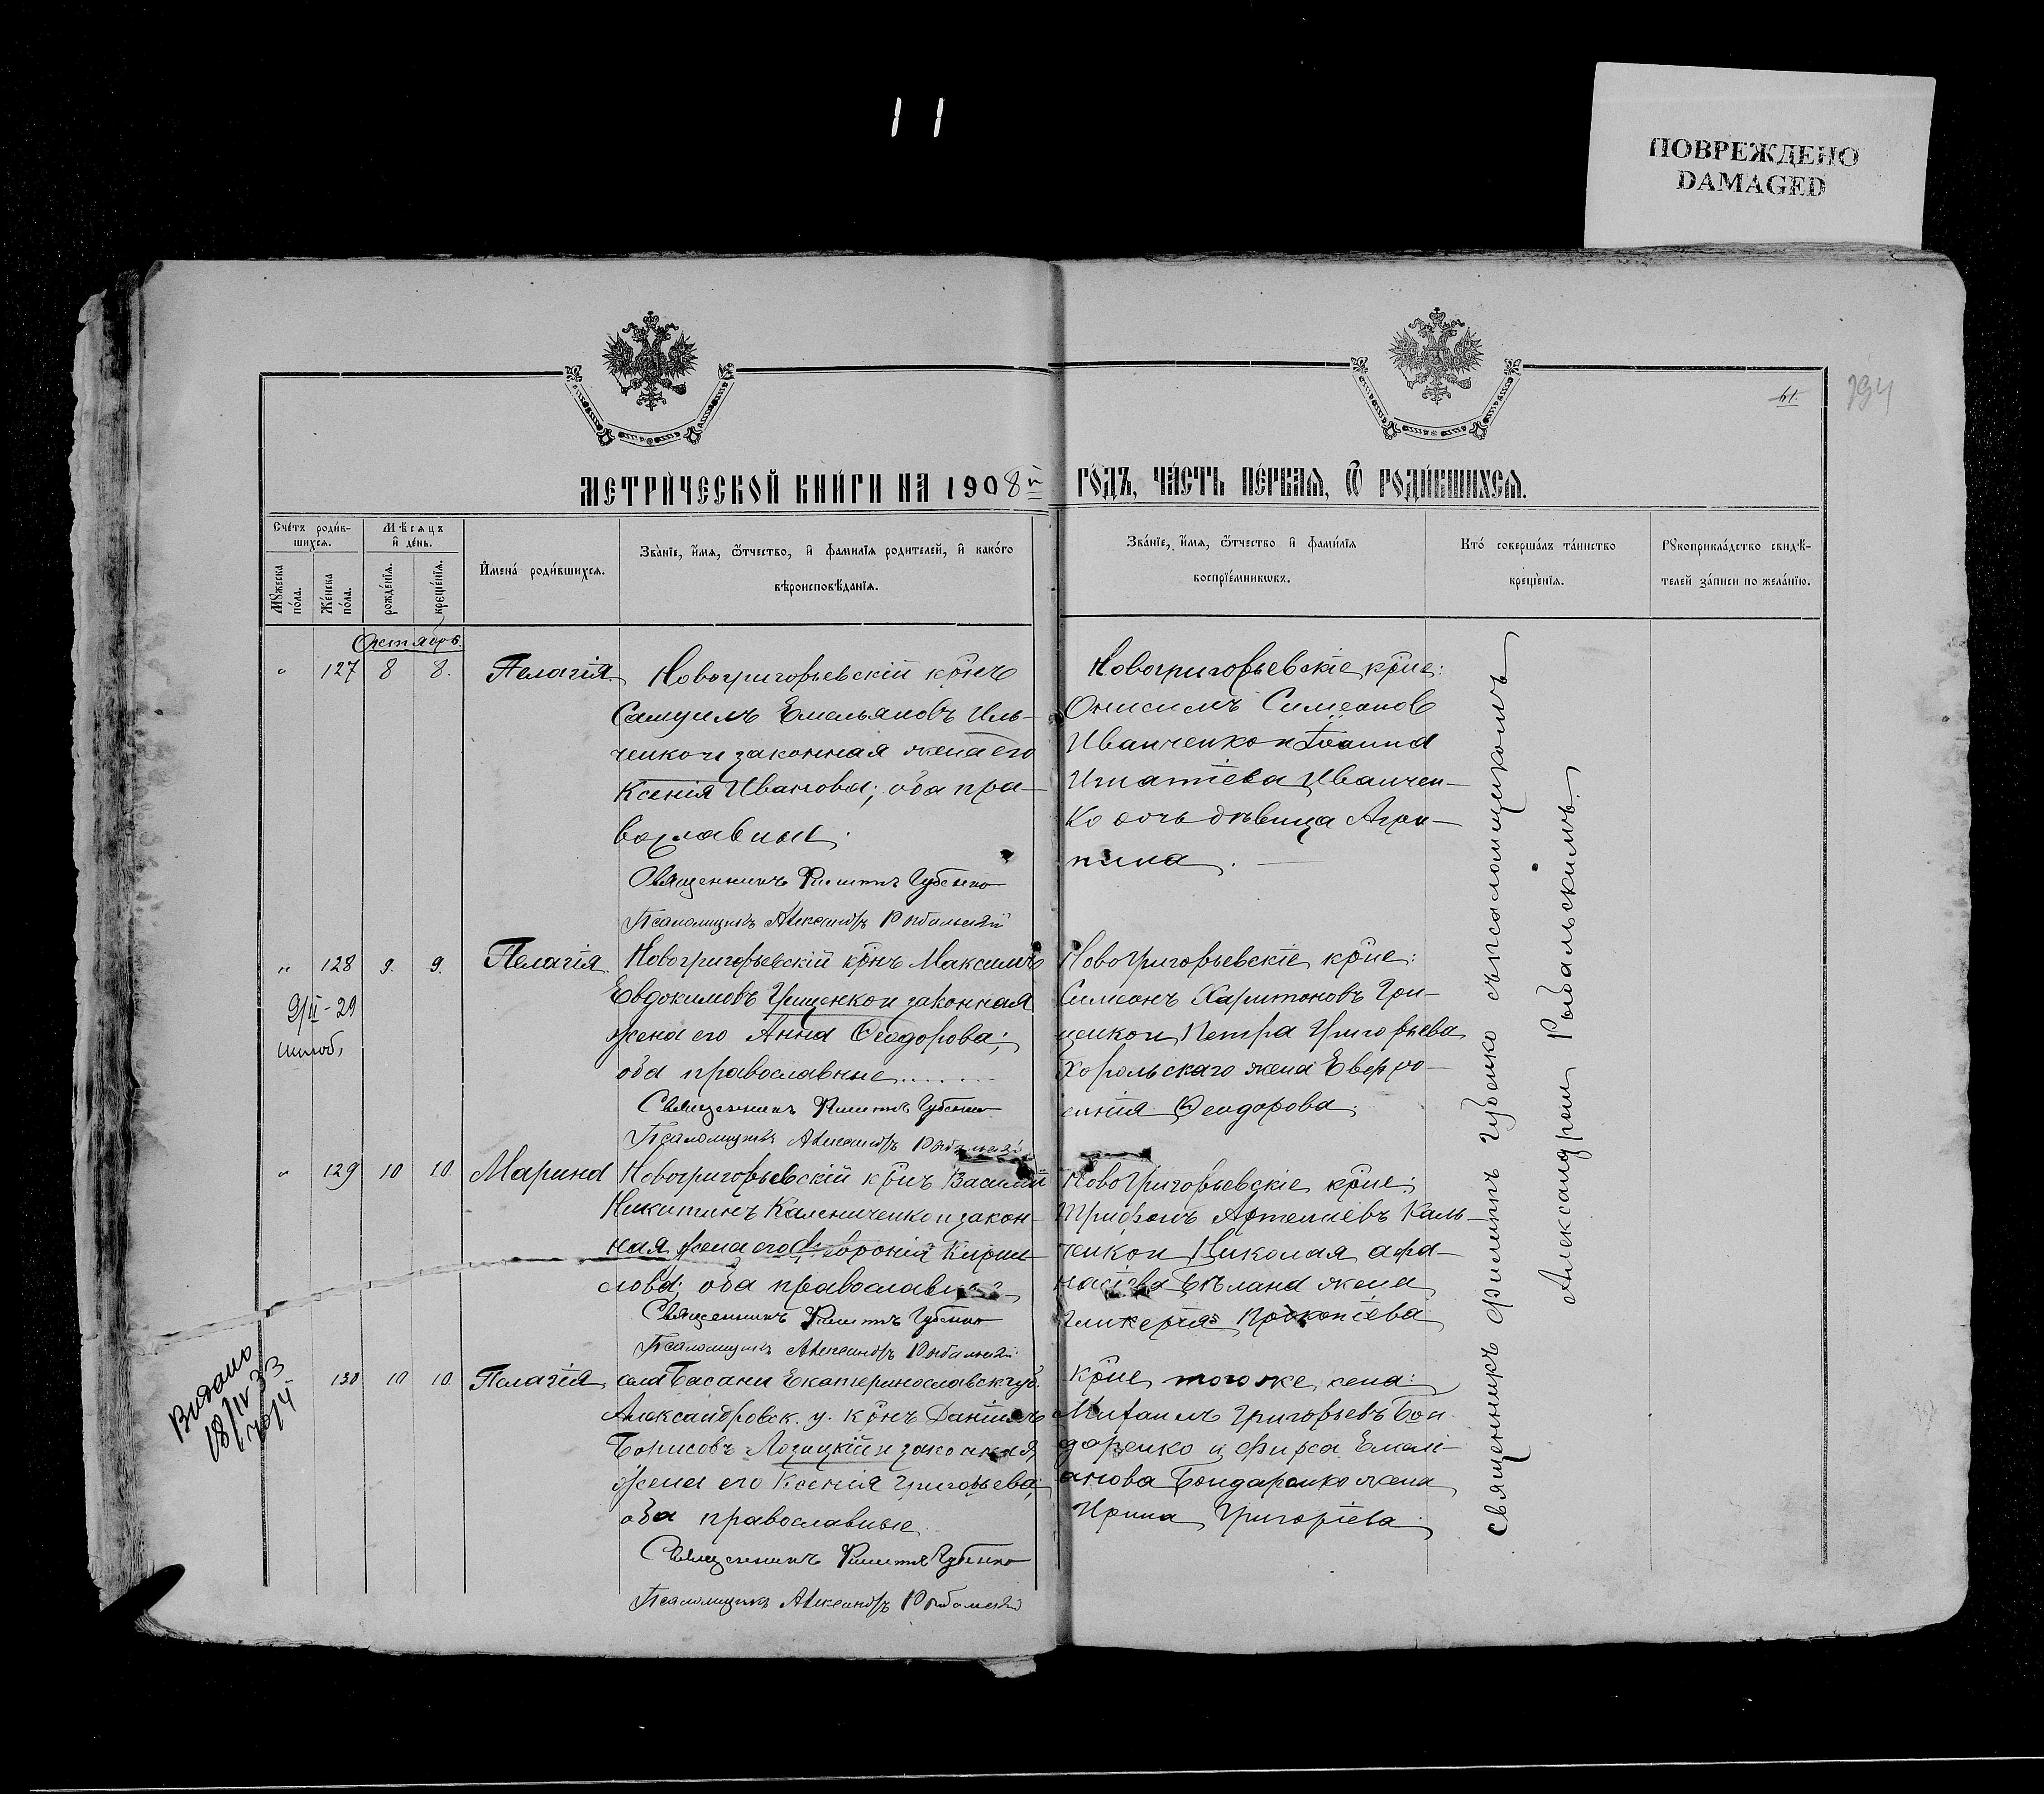 11
ПОВРЕЖДЕНО
DAMAGED
61.
794
МЕТРИЧЕСКОЙ КНИГИ НА 1908й ГОДЪ, ЧАСТЬ ПЕРВАЯ, Ѿ РОДИВШИХСЯ.
Счетъ родив-
шихся.
Мужеска
пола.
Женска
пола.
Мѣсяцъ
и день.
рожденія.
крещенія.
Имена родившихся.
Званіе, имя, ѿтчество, и фамилія родителей, и какого
вѣроисповѣданія.
Званіе, имя, ѿтчество и фамилія
воспріемниковъ.
Кто совершалъ таинство
крещенія.
Рукоприкладство свидѣ-
телей записи по желанію.
Октябрь.
" 127 8 8. Пелагія.
Новогригорьевскій крнъ
Самуилъ Емельяновъ Иль-
ченко и законная жена его
Ксенія Иванова; оба пра-
вославные.
Священникъ Филиппъ Губенко
Псаломщикъ Александръ Рыбальскій
Новогригорьевскіе крне:
Онисимъ Симеонов
Иванченко и Іоанна
Игнатіева Иванчен-
ко дочь дѣвица Агрип-
пина.
" 128 9. 9. Пелагія.
9/II-29
шлюб,
Новогригорьевскій крнъ Максимъ
Евдокимовъ Грищенко и законная
жена его Анна Ѳеодорова;
оба православные.......
Священникъ Филиппъ Губенко
Псаломщикъ Александръ Рыбальскій
Новогригорьевскіе крне:
Симеонъ Харитоновъ Гри-
щенко и Петра Григорьева
Хорольскаго жена Евфро-
синія Ѳеодорова.
" 129 10 10. Марина
Новогригорьевскій крнъ Василій
Никитинъ Калениченко и закон-
ная жена его Февронія Кирил-
лова; оба православные
Священникъ Филиппъ Губенко
Псаломщикъ Александръ Рыбальскій
Новогригорьевскіе крне:
Трифонъ Артемиевъ Каль-
ченко и Николая Афа-
насіева Бѣлана жена
Гликерія Прокопіева
Видано
18/IV 33
130 10 10. Пелагія
села Басани Екатеринославск. губ.
Александровск. у. крнъ Даніилъ
Борисовъ Лозицкій и законная
жена его Ксенія Григорьева;
оба православные
Священникъ Филиппъ Губенко
Псаломщикъ Александръ Рыбальскій
Крне того же села:
Михаилъ Григорьевъ Бон-
даренко и Фирса Емели-
анова Бондаренко жена
Ирина Григоріева.
Священникъ Филиппъ Губенко съ псаломщикомъ
Александромъ Рыбальскимъ.